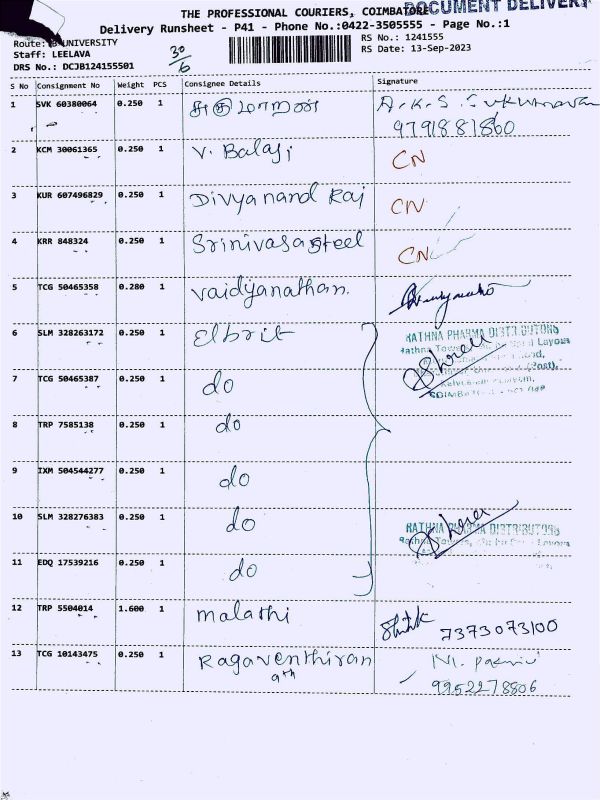 DOCUMENT DELIVERY
THE PROFESSIONAL COURIERS, COIMBATORE
Delivery Runsheet - P41 - Phone No.:0422-3505555 - Page No.:1
Route: B-UNIVERSITY
Staff: LEELAVA
DRS No.: DCJB124155501
30/6
RS No.: 1241555
RS Date: 13-Sep-2023
S No Consignment No Weight PCS Consignee Details Signature
1 SVK 60380064 0.250 1 சுகுமாறன் A.K.S. Sukumaran
9791881860
2 KCM 30061365 0.250 1 V. Balaji CN
3 KUR 607496829 0.250 1 Divyanand Raj CN
4 KRR 848324 0.250 1 Srinivasa Steel CN
5 TCG 50465358 0.280 1 Vaidyanathan.
6 SLM 328263172 0.250 1 Elbrit RATHNA PHARMA DISTRIBUTORS
7 TCG 50465387 0.250 1 do
8 TRP 7585138 0.250 1 do
9 IXM 504544277 0.250 1 do
10 SLM 328276383 0.250 1 do RATHNA PHARMA DISTRIBUTORS
11 EDQ 17539216 0.250 1 do
12 TRP 5504014 1.600 1 Malathi 7373073100
13 TCG 10143475 0.250 1 Ragaventhiran
9th
9952278806